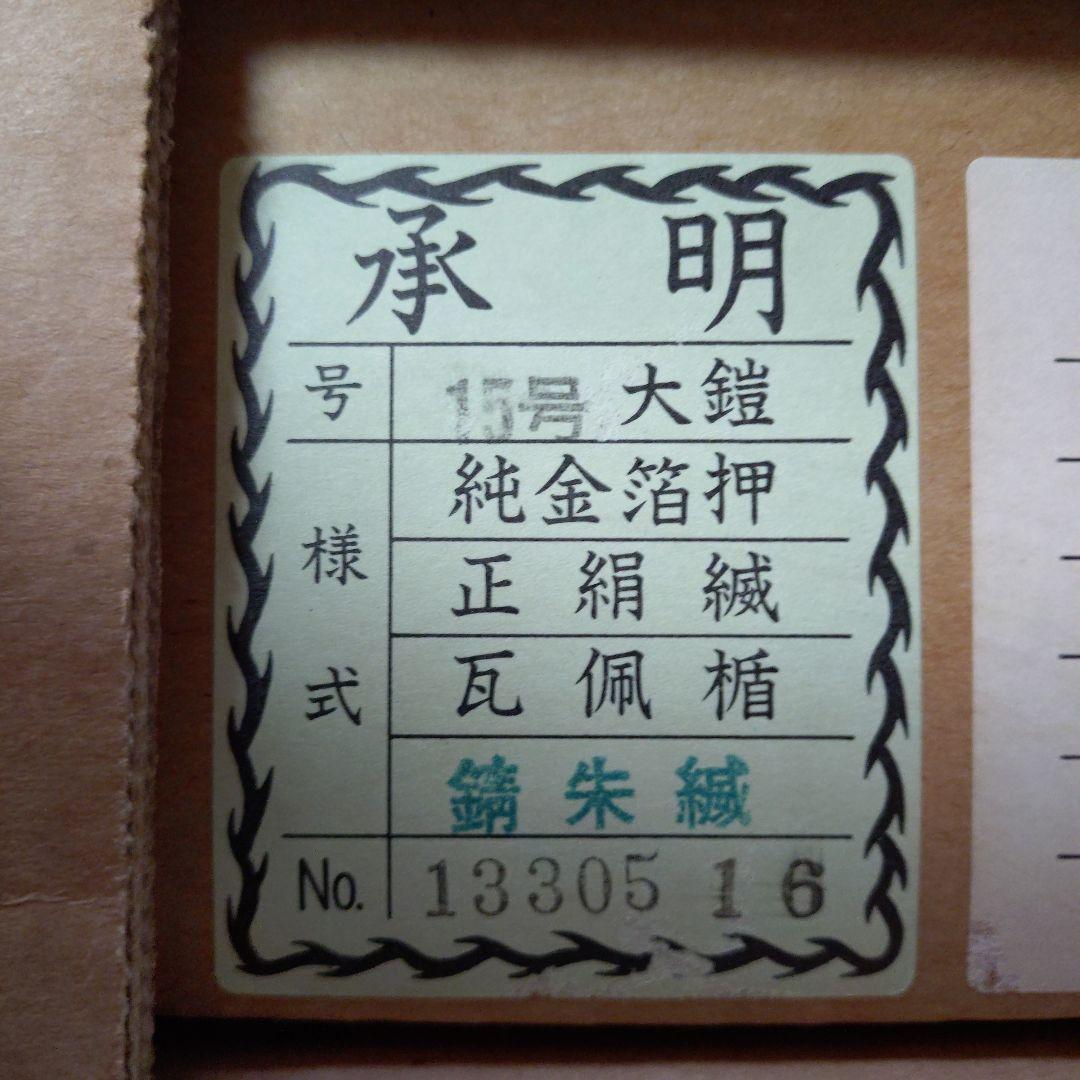 承明
号 15号 大鎧
純金箔押
正絹縅
様式
瓦佩楯
錆朱縅
No. 13305 16